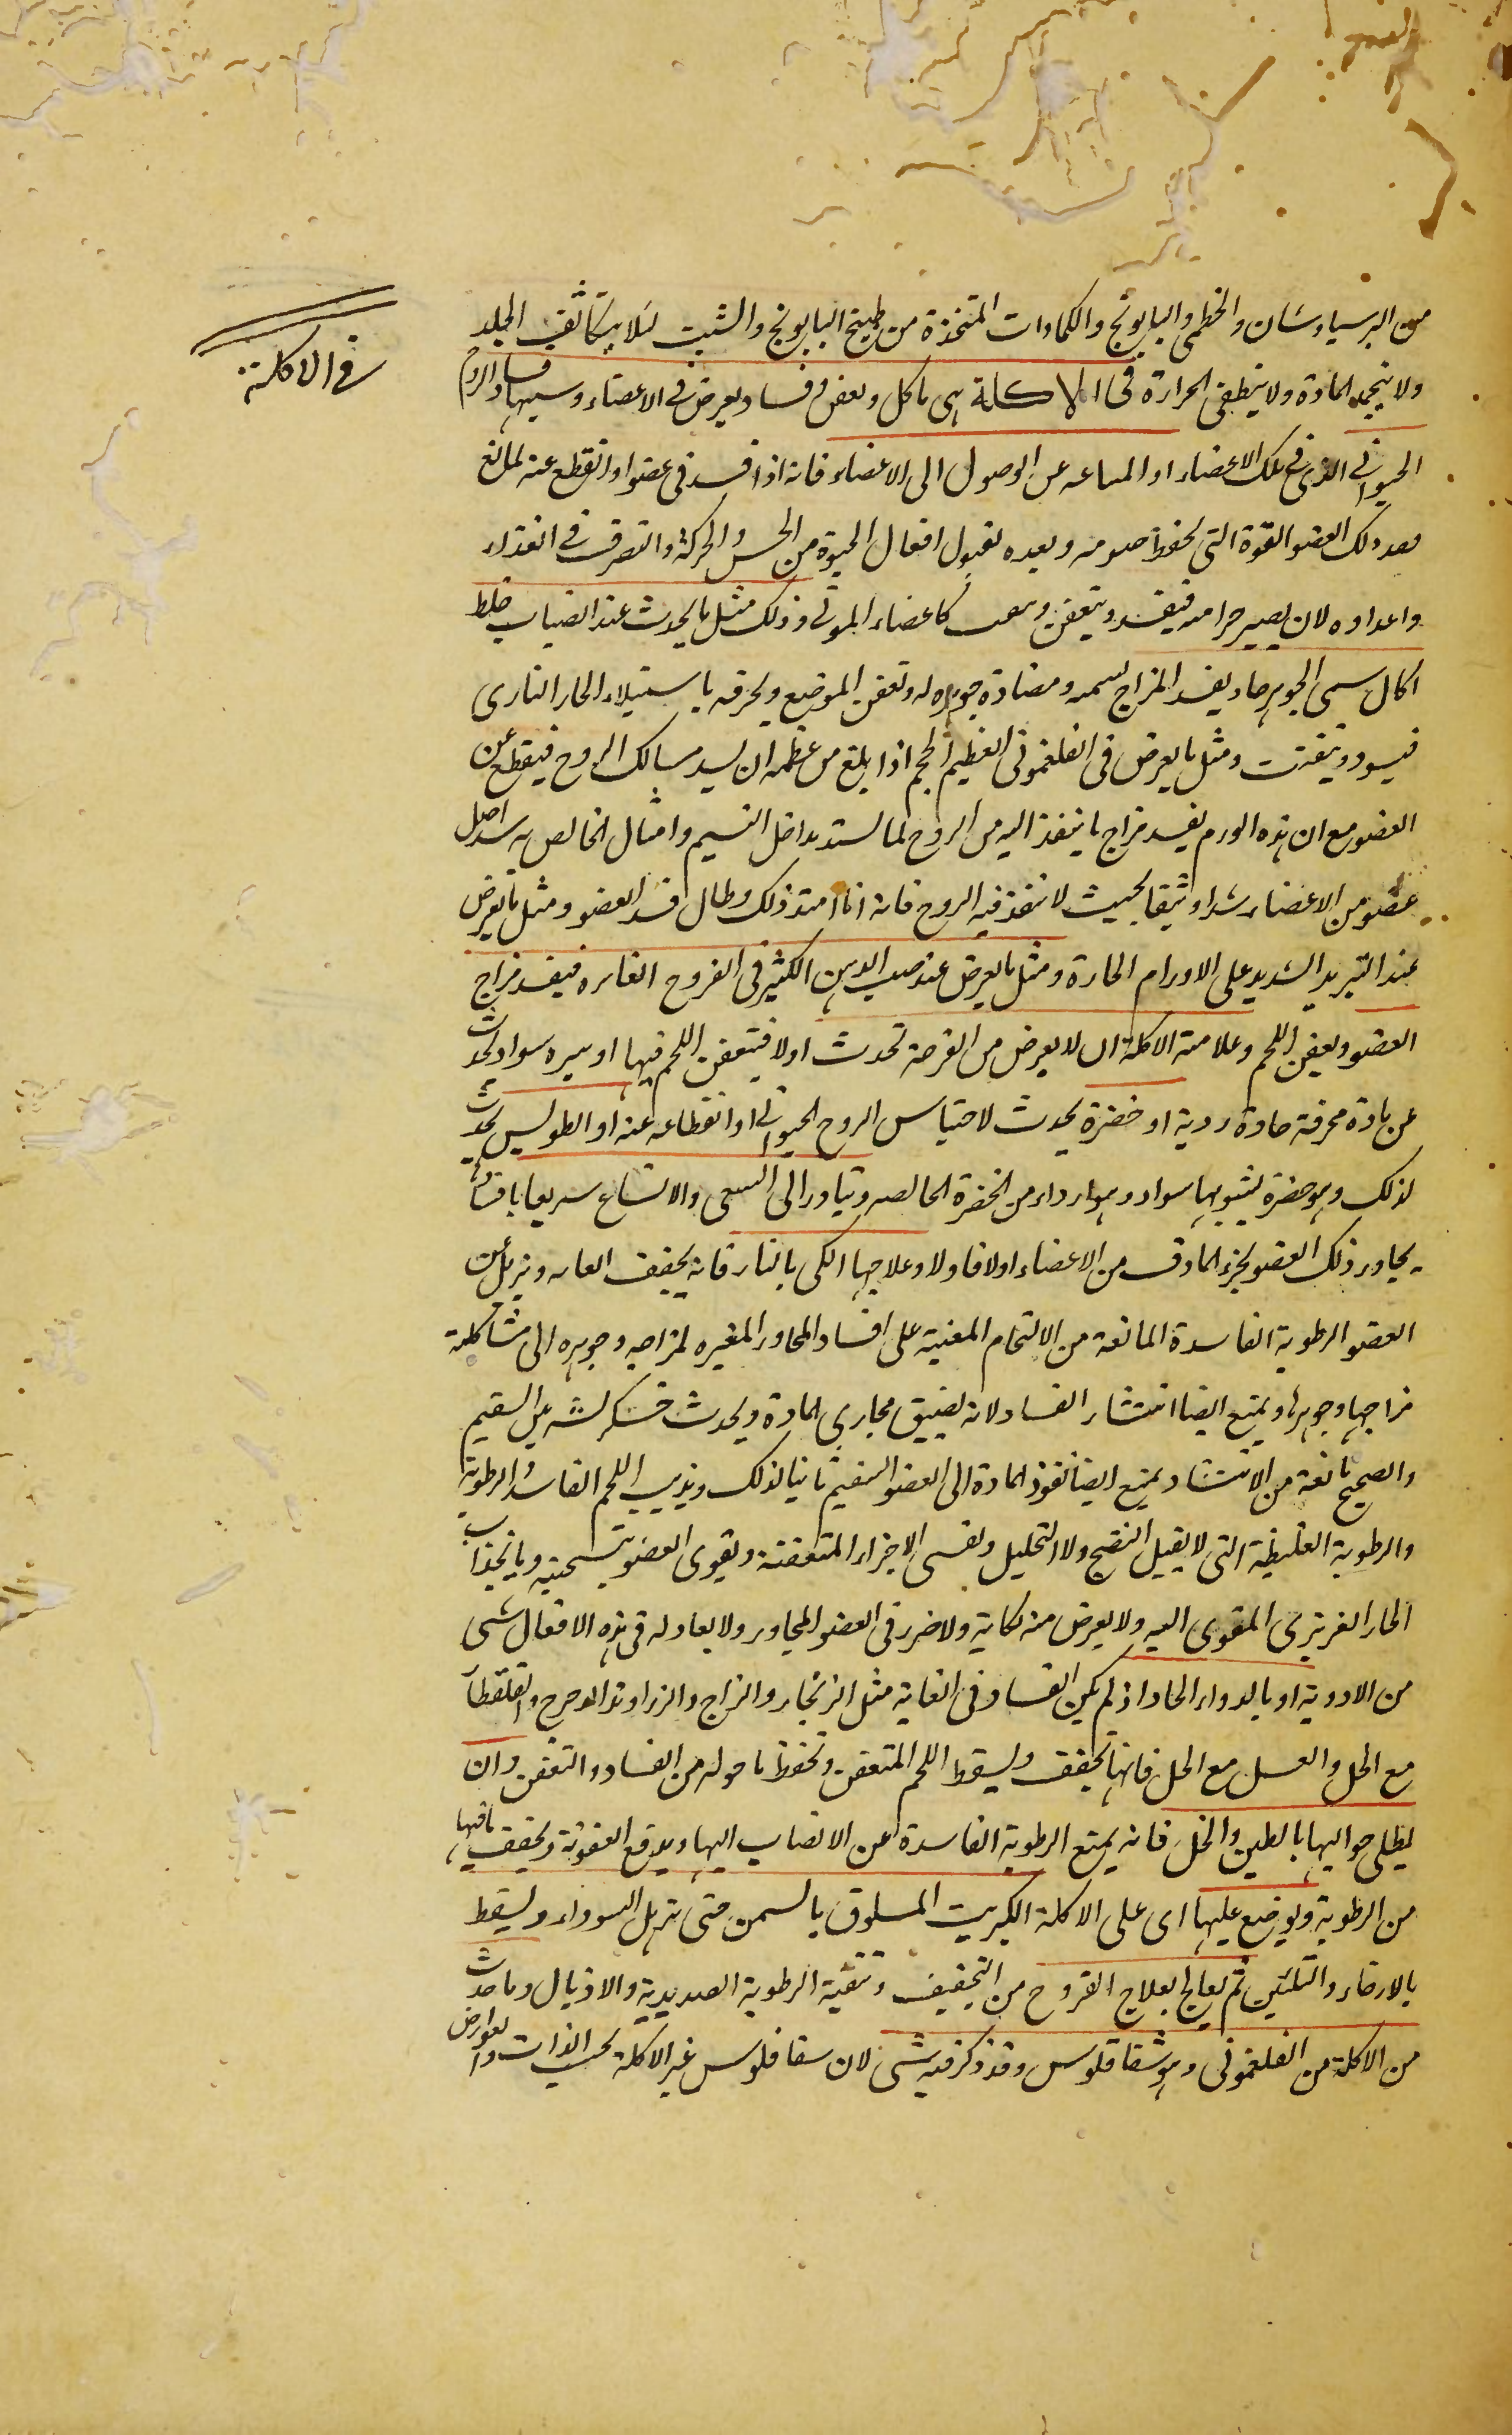 في الاكلة
من البرسياوشان والخطمى والبابونج والكمادات المتخذة من طبيخ البابونج والشبت لئلا يتكاثف الجلد
ولا ينجمد المادة ولا ينطفى الحرارة فى الاكلة هى تاكل وتعفن وفساد يعرض فى الاعضاء وسببها فساد الروح
الحيوانى الذى فى تلك الاعضاء او امتناعه عن الوصول الى الاعضاء فانه اذا فسد فى عضو او انقطع عنه لمانع
ذلك العضو القوة التى تحفظ حيوته ويعده لقبول افعال الحيوة من الحس والحركة والتصرف فى الغذاء
واعداده لان يصير جزا منه فيفسد ويتعفن كاعضاء الموتى وذلك مثل ما يحدث عند انصباب خلط
اكال سمى الجوهر حاد يفسد المزاج لسمه ومضادة جوهره له وتعفن الموضع ويحرقه باستيلاء الحار النارى
فيسود ويتفتت ومثل ما يعرض فى الفلغمونى العظيم الحجم اذا بلغ من عظمه ان يسد مسالك الروح فينقطع عن
العضو مع ان هذه الورم يفسد مزاج ما ينفذ اليه من الروح لما يستد مداخل النسيم وامثال الخالص به شد اصل
عضو من الاعضاء شدا وثيقا بحيث لا ينفذ فيه الروح فانه اذا امتد ذلك وطال فسد العضو ومثل ما يعرض
عند التبريد الشديد على الاورام الحارة ومثل ما يعرض عند صب الدهن الكثير فى القروح الغائره فيفسد مزاج
العضو ويعفن اللحم وعلامته الاكلة ان لا يعرض من القرحة تحدث اولا فيتعفن اللحم فيها او سيره سواد يحدث
عن مادة محرقة حادة ردية او خضرة يحدث لاحتباس الروح الحيوانى او انقطاعه عنه او الطوليس يحدث
لذلك وهو خضرة يشوبها سواد وهو ارداء من الخضرة الخالصه وتبادر الى السعى والاتساع سريعا بافساد ما
يجاور ذلك العضو بجزء المادف من الاعضاء اولا فاولا وعلاجها الكى بالنار فانه يجفف ويزيل عن
العضو الرطوبة الفاسدة المانعة من الالتحام المعنية على افساد المجاور المغيره لمزاجه وجوهره الى مشاكلة
مزاجها وجوهرها ويمنع ايضا انتشار الفساد لانه يضيق مجارى المادة ويحدث خشكريشه بين السقيم
والصحيح مانعة من الانتشار ويمنع ايضا نفوذ المادة الى العضو السقيم ثانيا لذلك ويذيب اللحم الفاسد والرطوبة
والرطوبة الغليظة التى لا يقبل النضج ولا التحليل ويفسى الاجزاء المتعفنة ويقوى العضو بتسخينه وبانجذاب
الحار الغريزى المقوى اليه ولا يعرض منه نكاية ولا ضرر فى العضو المجاور ولا يعادله فى هذه الافعال شى
من الادوية او بالدواء الحاد اذ لم يكن الفساد فى الغاية مثل الزنجار والزاج والزراوند المدحرج والقلقطار
مع الخل والعسل مع الخل فانها تجفف ويسقط اللحم المتعفن وتحفظ ما حوله من الفساد والتعفن وان
يطلى حواليها بالطين والخل فانه يمنع الرطوبة الفاسدة عن الانصاب اليها ويدفع العفونة ويجفف ما فيها
من الرطوبة ويوضع عليها اى على الاكلة الكبريت المسلوق بالسمن حتى ترهل السوداء ويسقط
بالارخاء والتليين ثم يعالج بعلاج القروح من التجفيف وتنقية الرطوبة الصديدية والاذيال وما حدث
من الاكلة من الفلغمونى وهو شقاقلوس وقد ذكر فيه شى لان سقاقلوس غير الاكلة بحسب الذات والعوارض